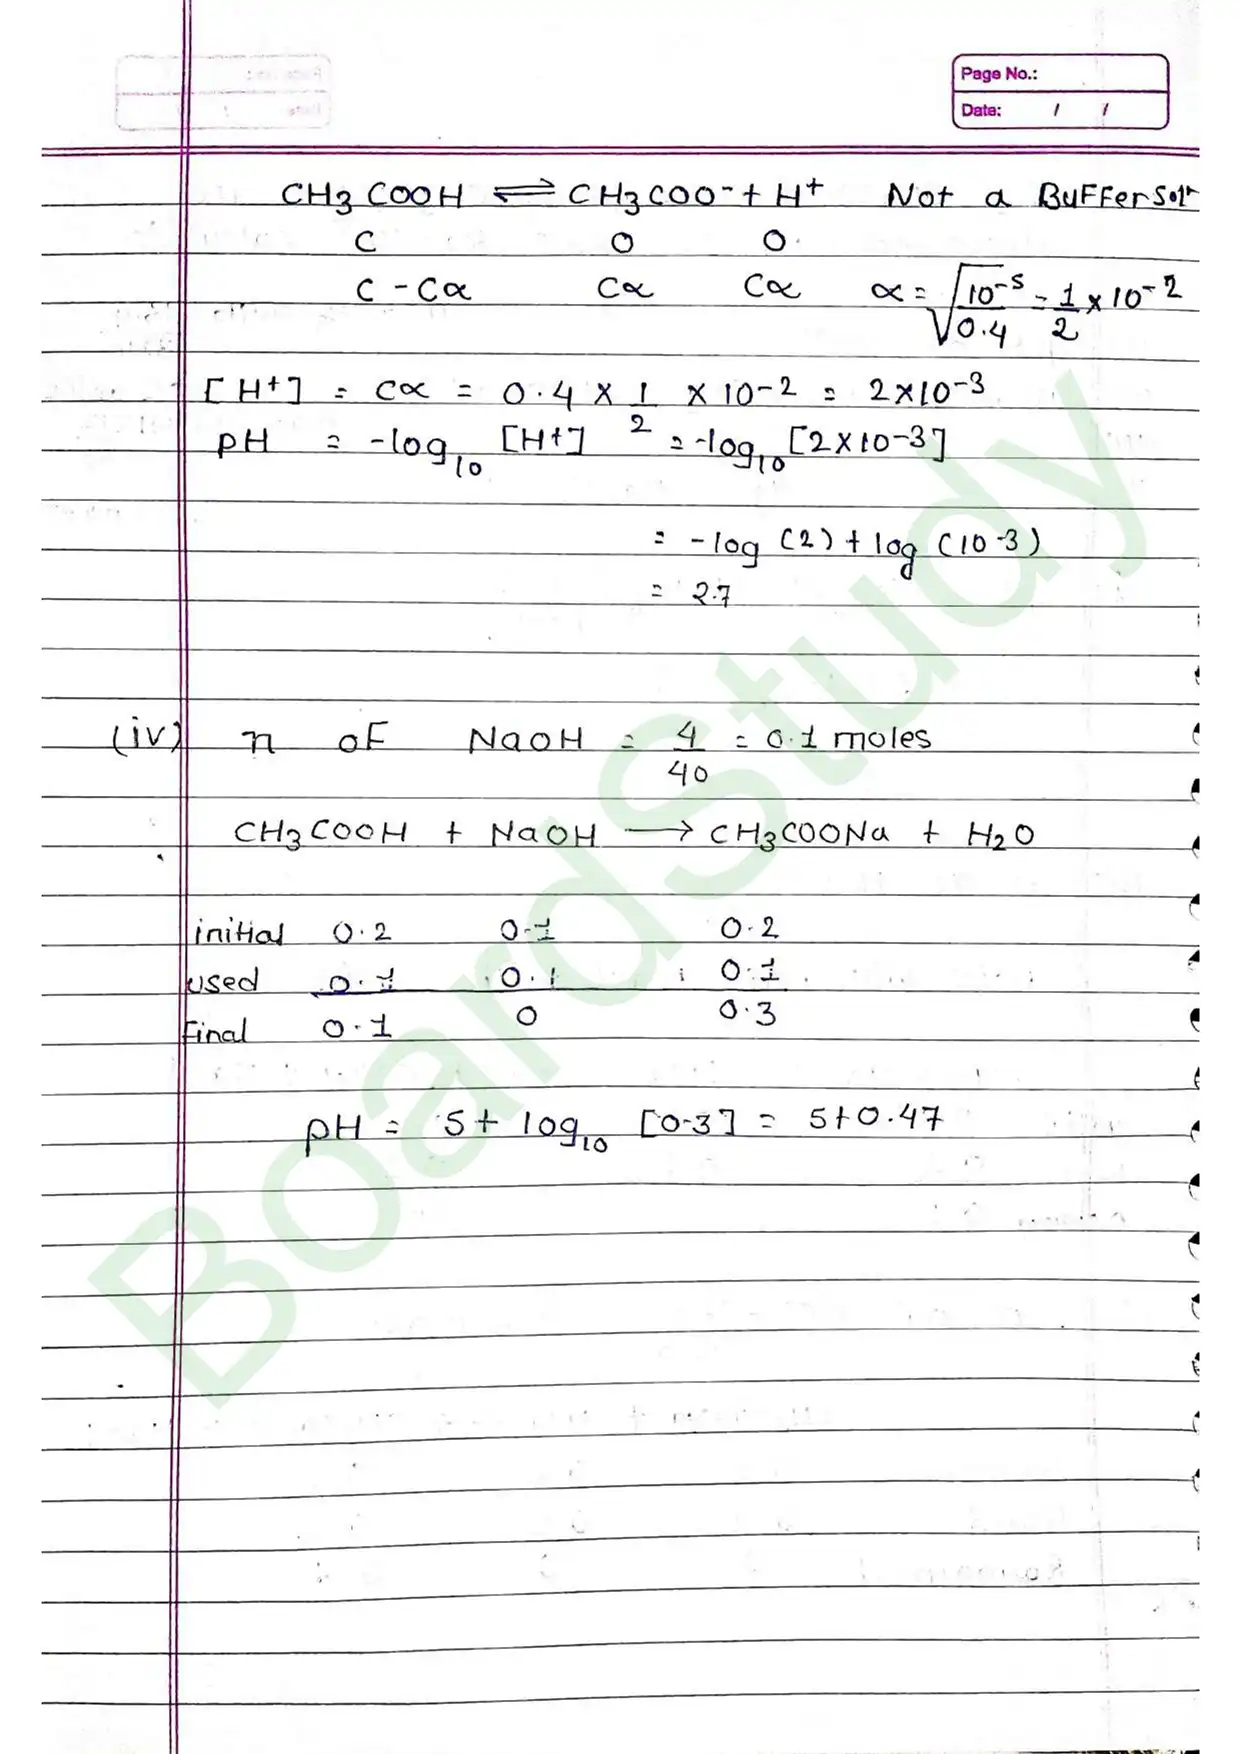 Page No.:
Date: / /
CH3 COOH ⇌ CH3COO- + H+ Not a BuFFer Sol^n
C O O
C - Cα Cα Cα α = √10^-5/0.4 = 1/2 × 10^-2
[H+] = Cα = 0.4 × 1/2 × 10^-2 = 2×10^-3
pH = -log10 [H+] = -log10 [2×10^-3]
= -log (2) + log (10^-3)
= 2.7
(iv) n oF NaOH = 4/40 = 0.1 moles
CH3COOH + NaOH → CH3COONa + H2O
initial 0.2 0.1 0.2
used 0.1 0.1 0.1
Final 0.1 0 0.3
pH = 5 + log10 [0.3] = 5+0.47
BoardStudy